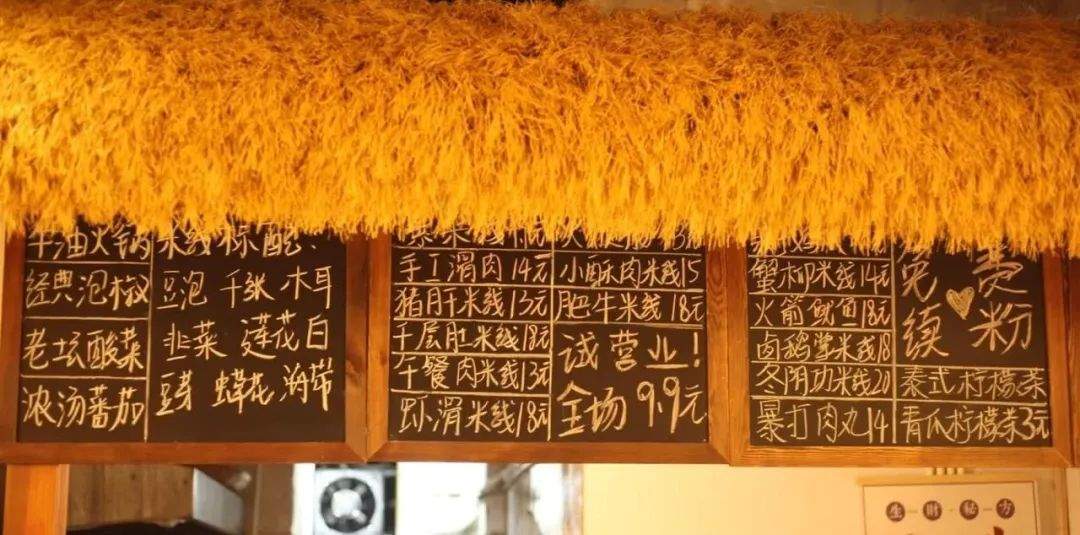 牛油火锅 米线标配:
经典泡椒 豆泡 千张 木耳
老坛酸菜 韭菜 莲花白
浓汤番茄 豆芽 蟑花 海带
手工滑肉14元 小酥肉米线15
猪肝米线13元 肥牛米线18元
千层肚米线18元 试营业!
午餐肉米线13元 全场9.9元
虾滑米线18元
蟹柳米线14元 免费
火箭鱿鱼18元 续粉
卤鹅掌米线18
冬阴功米线20 泰式柠檬茶
暴打肉丸14 青瓜柠檬茶3元
生财秘方